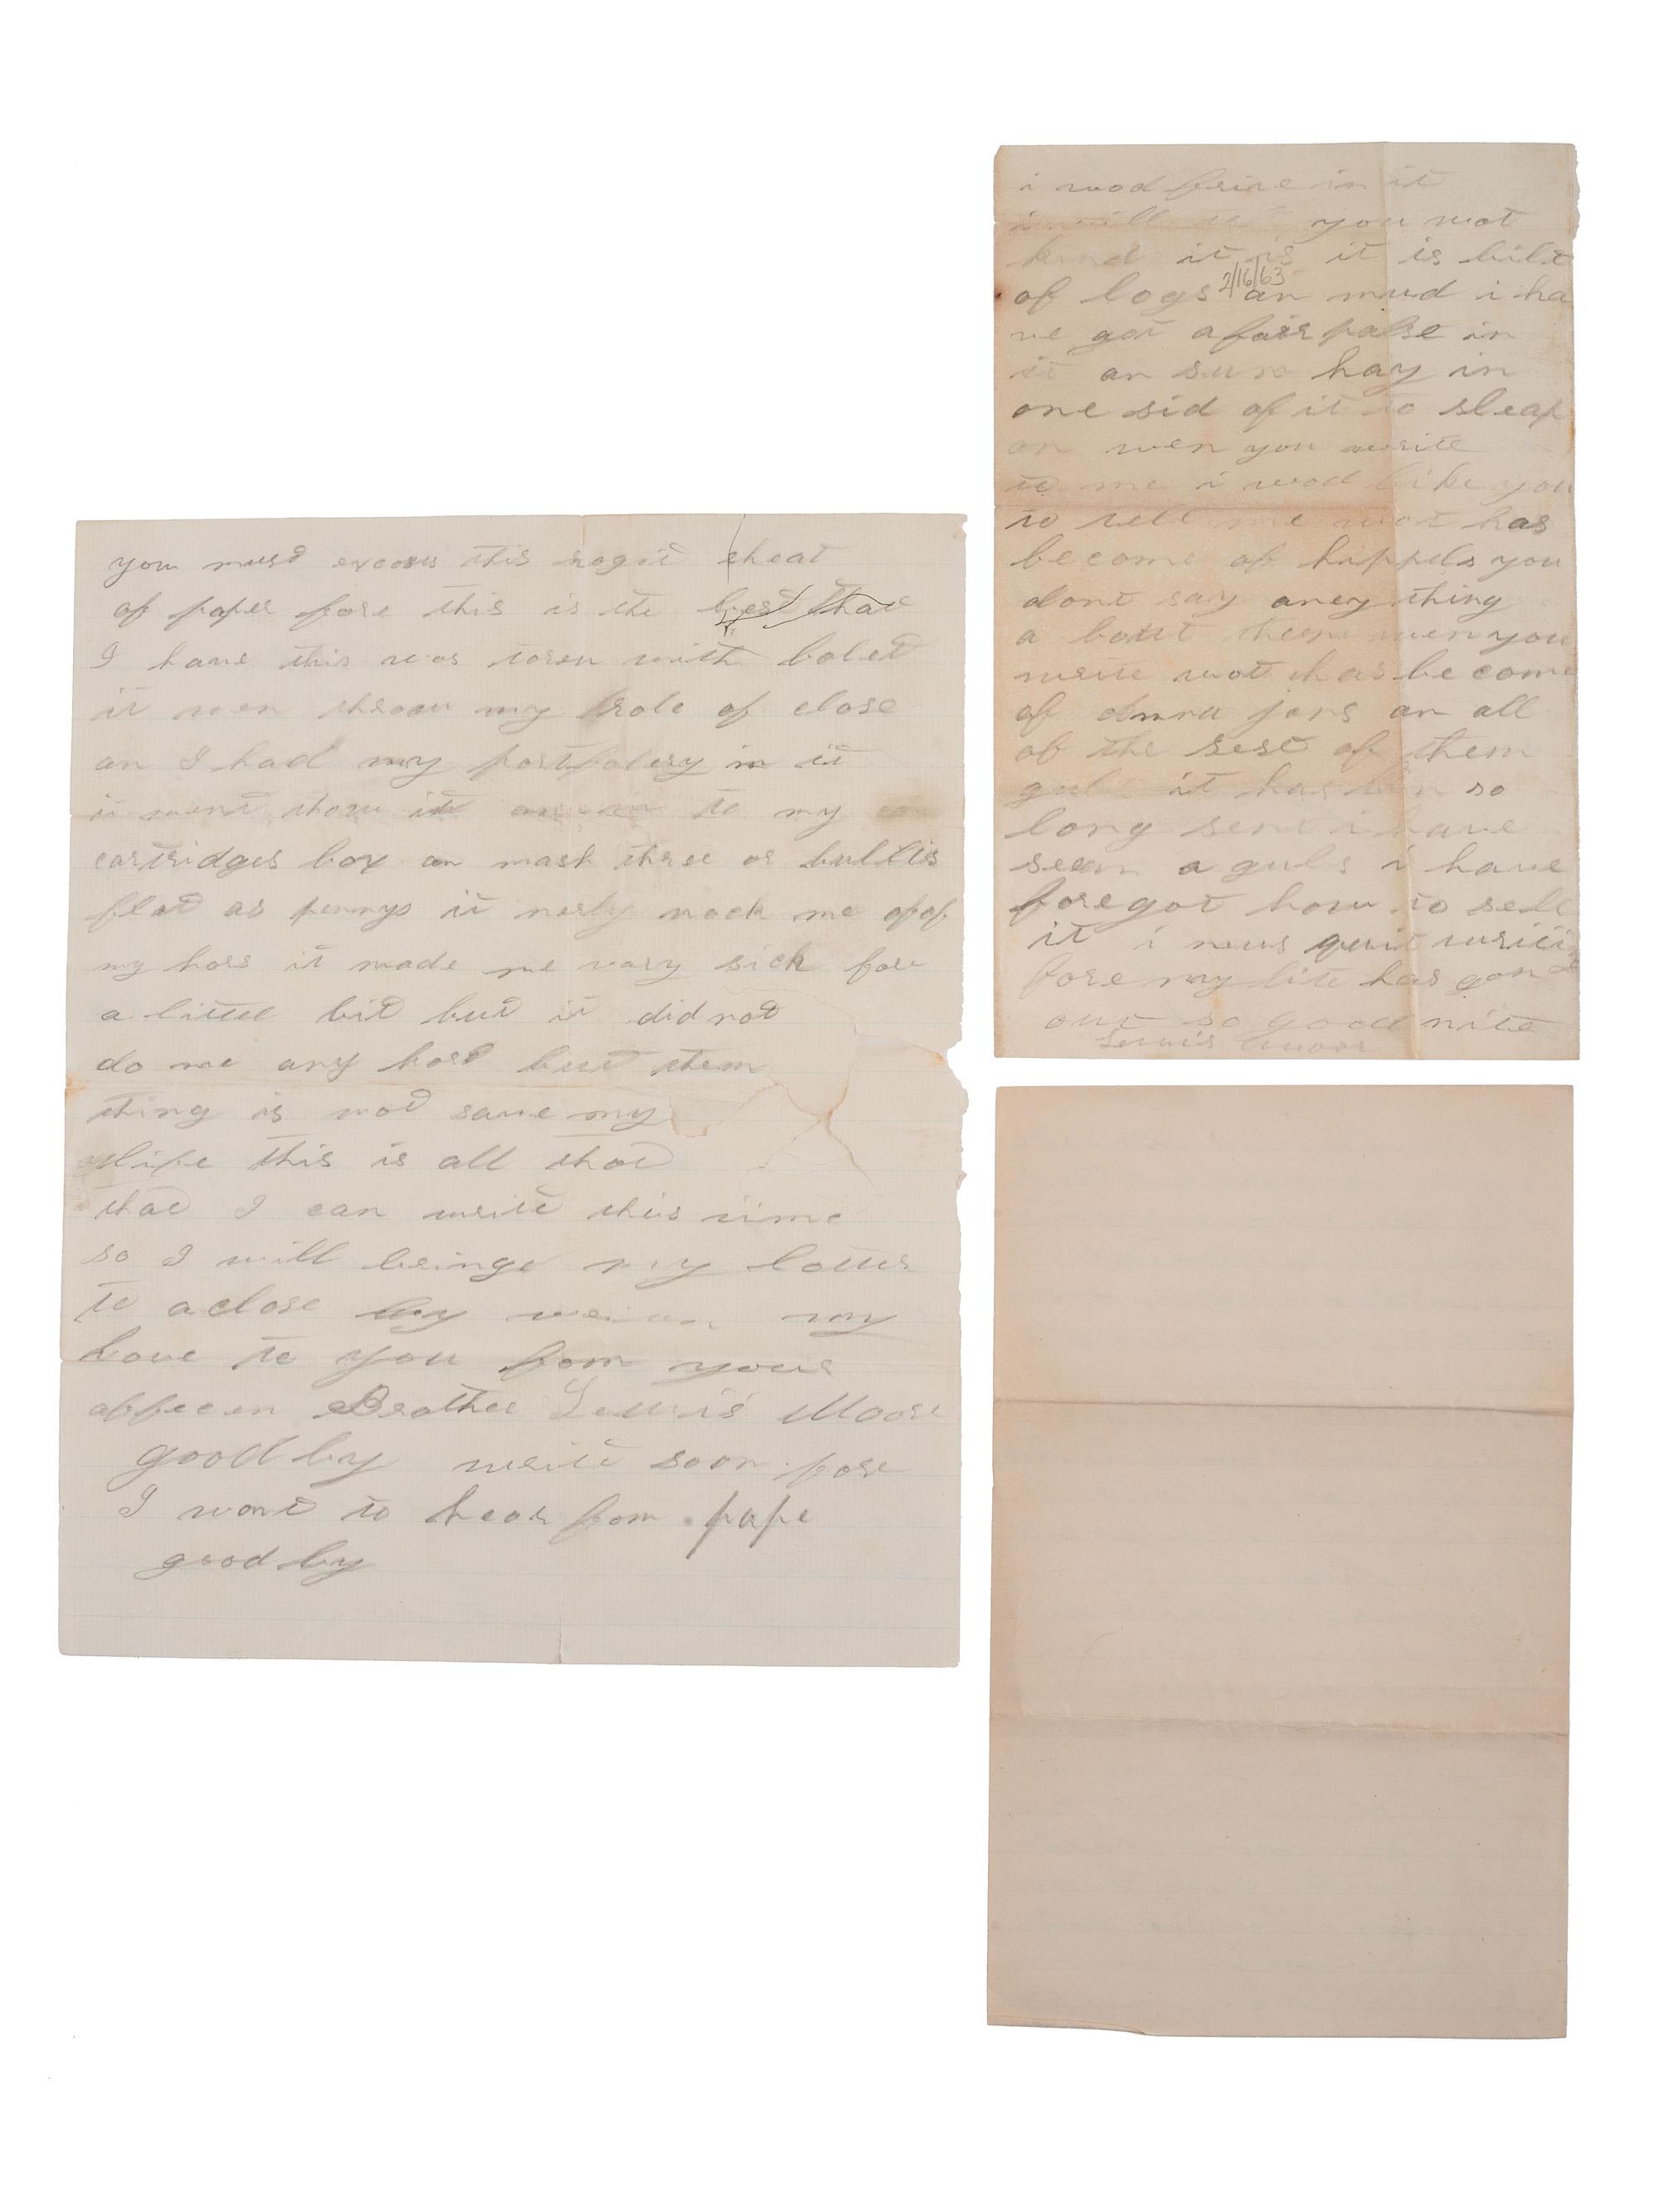 you musd excoses this ragit cheat
of paper fore this is the best that
I have this was toren with boled
it wen throu my role of close
an I had my portfolery in it
it went throu it to my
cartridges box an mash three or bullits
flad as pennys it nerly nock me of of
my hors it made me vary sick fore
a littel bid bud it did not
do me any hord but them
thing is wod save my
life this is all thad
thad I can write this time
so I will bringe my letter
to a close by my
love to you from your
affecen Brother Lewis Moore
good by write soon fore
I wont to hear fom pape
good by
i wod in it
i will tell you wot
kind it is it is bilt
of logs an mud i ha
2/16/63
ve got a fair palse in
it an sum hay in
one sid of it to sleap
on wen you write
to me i wod like you
to tell me wot has
become of hippels you
dont say aney thing
a bout them wen you
write wot has be come
of an all
of the rest of them
guls it has bin so
long senc i have
seen a guls i have
foregot how to sell
it i mus quit writing
fore my lite has gon
out so good nite
Lewis Moor